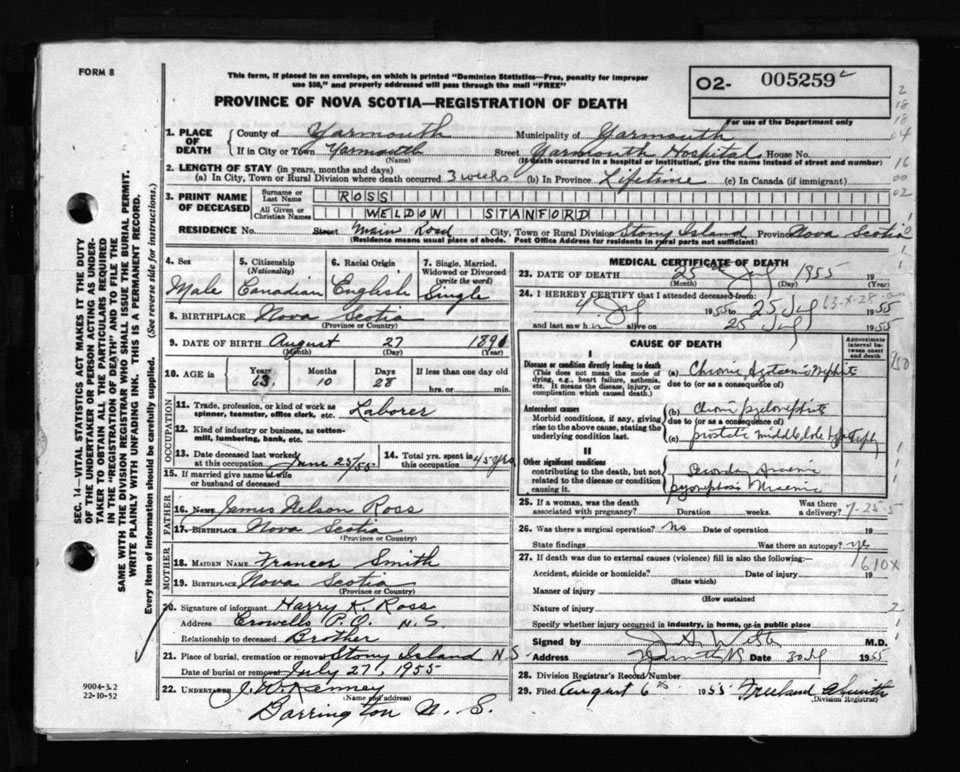 FORM 8
This form, if placed in an envelope, on which is printed "Dominion Statistics—Free, penalty for improper
use $50," and properly addressed will pass through the mail "FREE"
O2- 005259
PROVINCE OF NOVA SCOTIA—REGISTRATION OF DEATH
For use of the Department only
1. PLACE OF DEATH
County of Yarmouth Municipality of Yarmouth
If in City or Town Yarmouth Street Yarmouth Hospital House No.
(Name) (If death occurred in a hospital or institution, give the name instead of street and number)
2. LENGTH OF STAY (in years, months and days)
(a) In City, Town or Rural Division where death occurred 3 weeks (b) In Province Lifetime (c) In Canada (if immigrant)
3. PRINT NAME OF DECEASED
Surname or Last Name ROSS
All Given or Christian Names WELDON STANFORD
RESIDENCE No. Street Main Road City, Town or Rural Division Stony Island Province Nova Scotia
(Residence means usual place of abode. Post Office Address for residents in rural parts not sufficient)
4. Sex Male
5. Citizenship (Nationality) Canadian
6. Racial Origin English
7. Single, Married, Widowed or Divorced (write the word) Single
8. BIRTHPLACE Nova Scotia
(Province or Country)
9. DATE OF BIRTH August 27
(Month) (Day) (Year)
10. AGE in Years 63 Months 10 Days 28 If less than one day
hrs. or min.
OCCUPATION
11. Trade, profession, or kind of work as spinner, teamster, office clerk, etc. Laborer
12. Kind of industry or business, as cotton-mill, lumbering, bank, etc.
13. Date deceased last worked at this occupation June 25/55
14. Total yrs. spent in this occupation 45 yrs
15. If married give name of wife or husband of deceased
FATHER
16. Name James Nelson Ross
17. Birthplace Nova Scotia
(Province or Country)
MOTHER
18. MAIDEN NAME Frances Smith
19. BIRTHPLACE Nova Scotia
(Province or Country)
20. Signature of informant Harry K. Ross
Address Crowells P.O. N.S.
Relationship to deceased Brother
21. Place of burial, cremation or removal Stony Island N.S.
Date of burial or removal July 27, 1955
22. UNDERTAKER
(Name and address)
Barrington N. S.
MEDICAL CERTIFICATE OF DEATH
23. DATE OF DEATH 25 July 1955 19
(Month) (Day) (Year)
24. I HEREBY CERTIFY that I attended deceased from:
4 July 1955 to 25 July 1955
and last saw him alive on 25 July 1955
CAUSE OF DEATH
Approximate interval between onset and death
I
Disease or condition directly leading to death
(This does not mean the mode of dying, e.g., heart failure, asthenia, etc. It means the disease, injury, or complication which caused death.)
(a) Chronic Azotaemic Nephritis
due to (or as a consequence of)
Antecedent causes
Morbid conditions, if any, giving rise to the above cause, stating the underlying condition last.
(b) Chronic pyelonephritis
due to (or as a consequence of)
(c) prostatic middle lobe
II
Other significant conditions
contributing to the death, but not related to the disease or condition causing it.
Secondary
25. If a woman, was the death associated with pregnancy? Duration weeks. Was there a delivery?
26. Was there a surgical operation? No Date of operation 19
State findings Was there an autopsy? yes
27. If death was due to external causes (violence) fill in also the following:—
610X
Accident, suicide or homicide? Date of injury 19
(State which)
Manner of injury
(How sustained
Nature of injury
Specify whether injury occurred in industry, in home, or in public place
Signed by M.D.
Address Yarmouth NS Date 30 July 1955
28. Division Registrar's Record Number
29. Filed August 6th 1955
(Division Registrar)
SEC. 14—VITAL STATISTICS ACT MAKES IT THE DUTY
OF THE UNDERTAKER OR PERSON ACTING AS UNDERTAKER TO OBTAIN ALL THE PARTICULARS REQUIRED
IN THE "REGISTRATION OF DEATH" AND TO FILE THE
SAME WITH THE DIVISION REGISTRAR WHO SHALL ISSUE THE BURIAL PERMIT.
WRITE PLAINLY WITH UNFADING INK. THIS IS A PERMANENT RECORD.
Every item of information should be carefully supplied. (See reverse side for instructions.)
9004-3.2
22-10-52